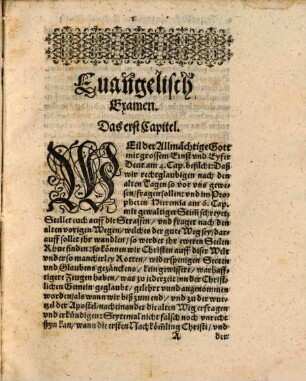 Euangelisch
Examen.
Das erst Capitel.
WEil der Allmächtige Gott
mit grossem Ernst vnd Eyfer
Deut. am 4. Cap. befilcht: Daß
wir rechtglaubigen nach den
alten Tagen so vor vns gewe-
sen/fragen sollen: vnd im Pro-
pheten Hieremia am 6. Cap.
mit gewaltiger Stim̃ schreyet:
Stellet euch auff die Strassen/ vnd fraget nach den
alten vorigen Wegen/welches der gute Weg sey/dar-
auff sollet ihr wandlen/ so werdet ihr ewren Seelen
Rhue finden: so können wir Christen auff diser Welt
vnder so mancherley Rotten/ widerspenigen Secten
vnd Glaubens gezäncken/ kein gewissers/ warhaff-
tigers Zeugen haben/ was zu jederzeit in der Christli-
chen Gmein geglaubt/ gelehrt vnnd angenommen
worden/als wann wir biß zum end/ vnd zu der wur-
tzel der Apostel/nacheinander die alten Weg erfragen
vnd erkündigen: Seytemal nicht falsch noch vnrecht
seyn kan/wann die ersten Nachkömling Christi/ vnd
A der